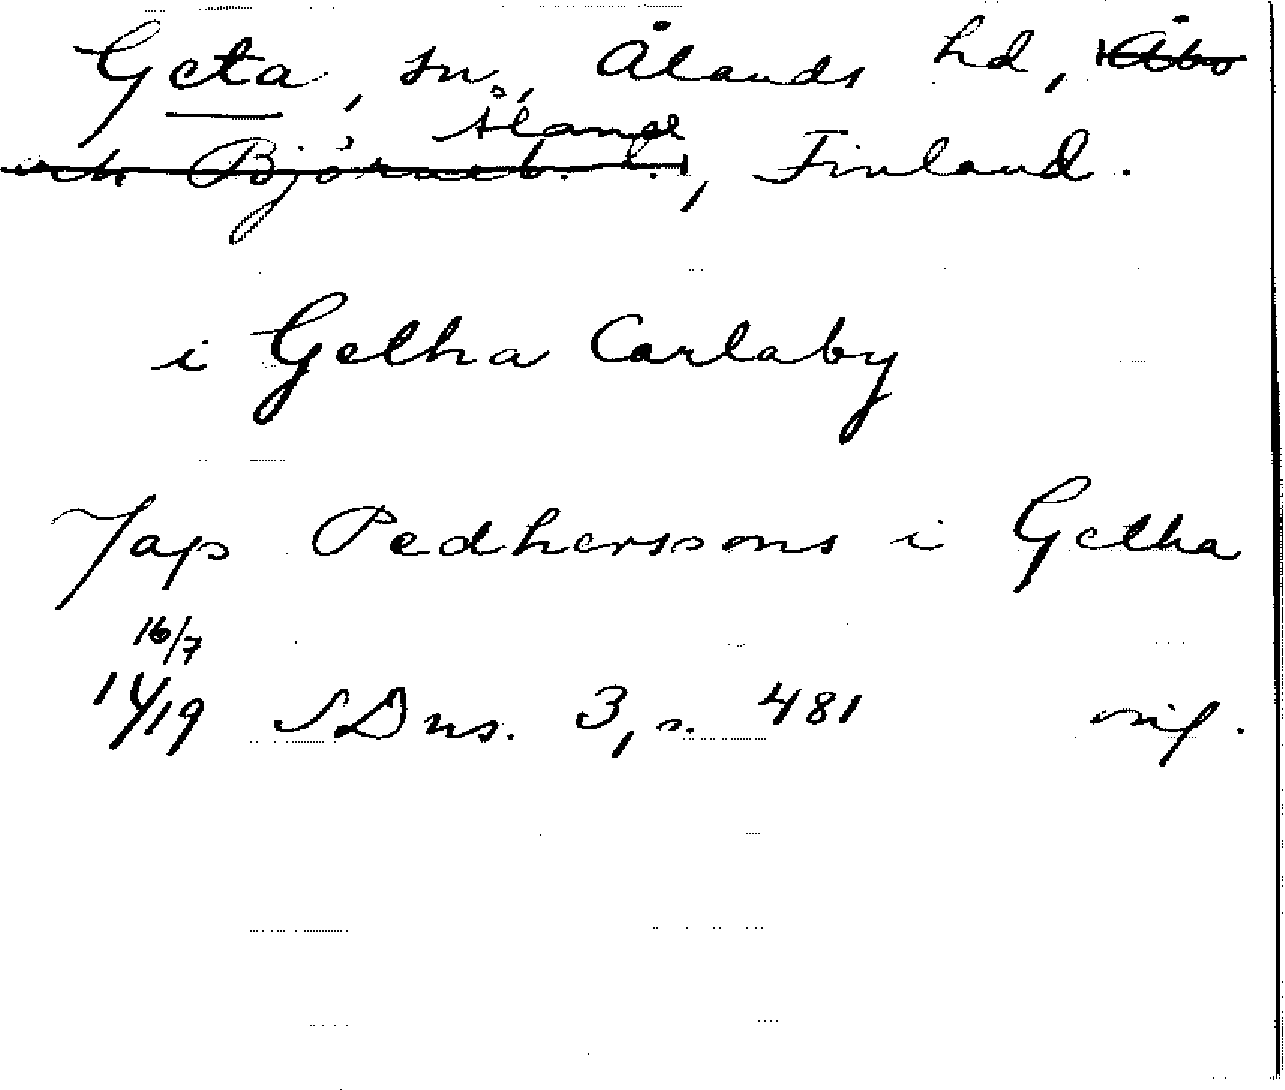 Geta, sn, Ålands hd, Åbo
Åland
och Björneb. l., Finland.
i Getha Carlaby
Jap Pedherssons i Getha
16/7
1419 SDns. 3, s. 481 mf.